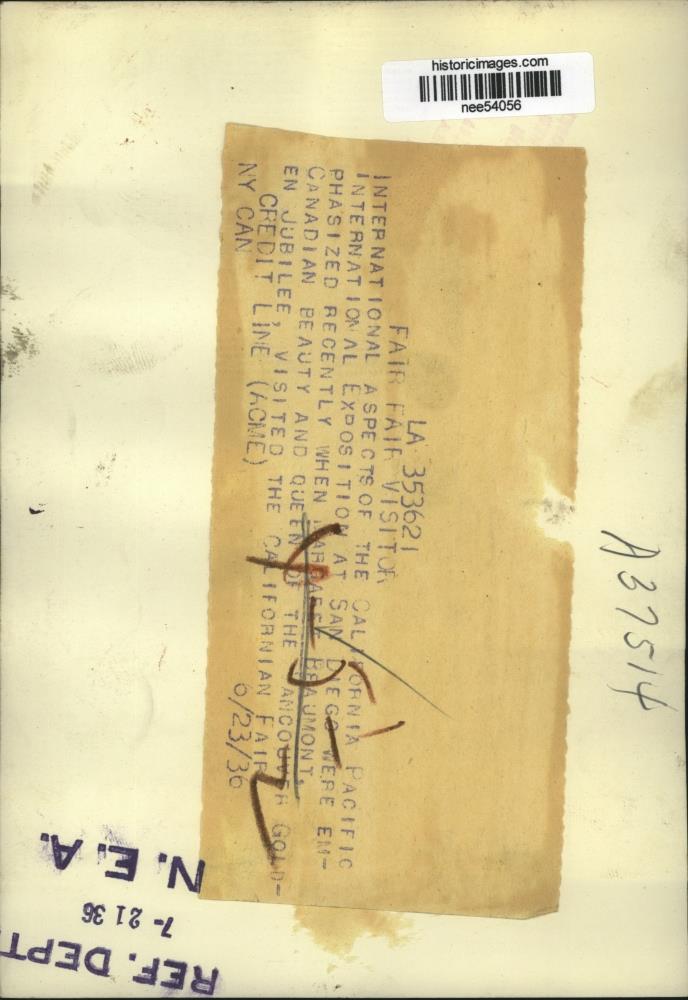 historicimages.com
nee54056
LA 353621
FAIR FAIR VISITOR
INTERNATIONAL ASPECTS OF THE CALIFORNIA PACIFIC
INTERNATIONAL EXPOSITION AT SAN DIEGO WERE EM-
PHASIZED RECENTLY WHEN MARGARET BEAUMONT,
CANADIAN BEAUTY AND QUEEN OF THE VANCOUVER GOLD-
EN JUBILEE, VISITED THE CALIFORNIAN FAIR
CREDIT LINE (ACME) 6/23/36
NY CAN
A37514
N.E.A.
7-21 36
REF. DEPT.